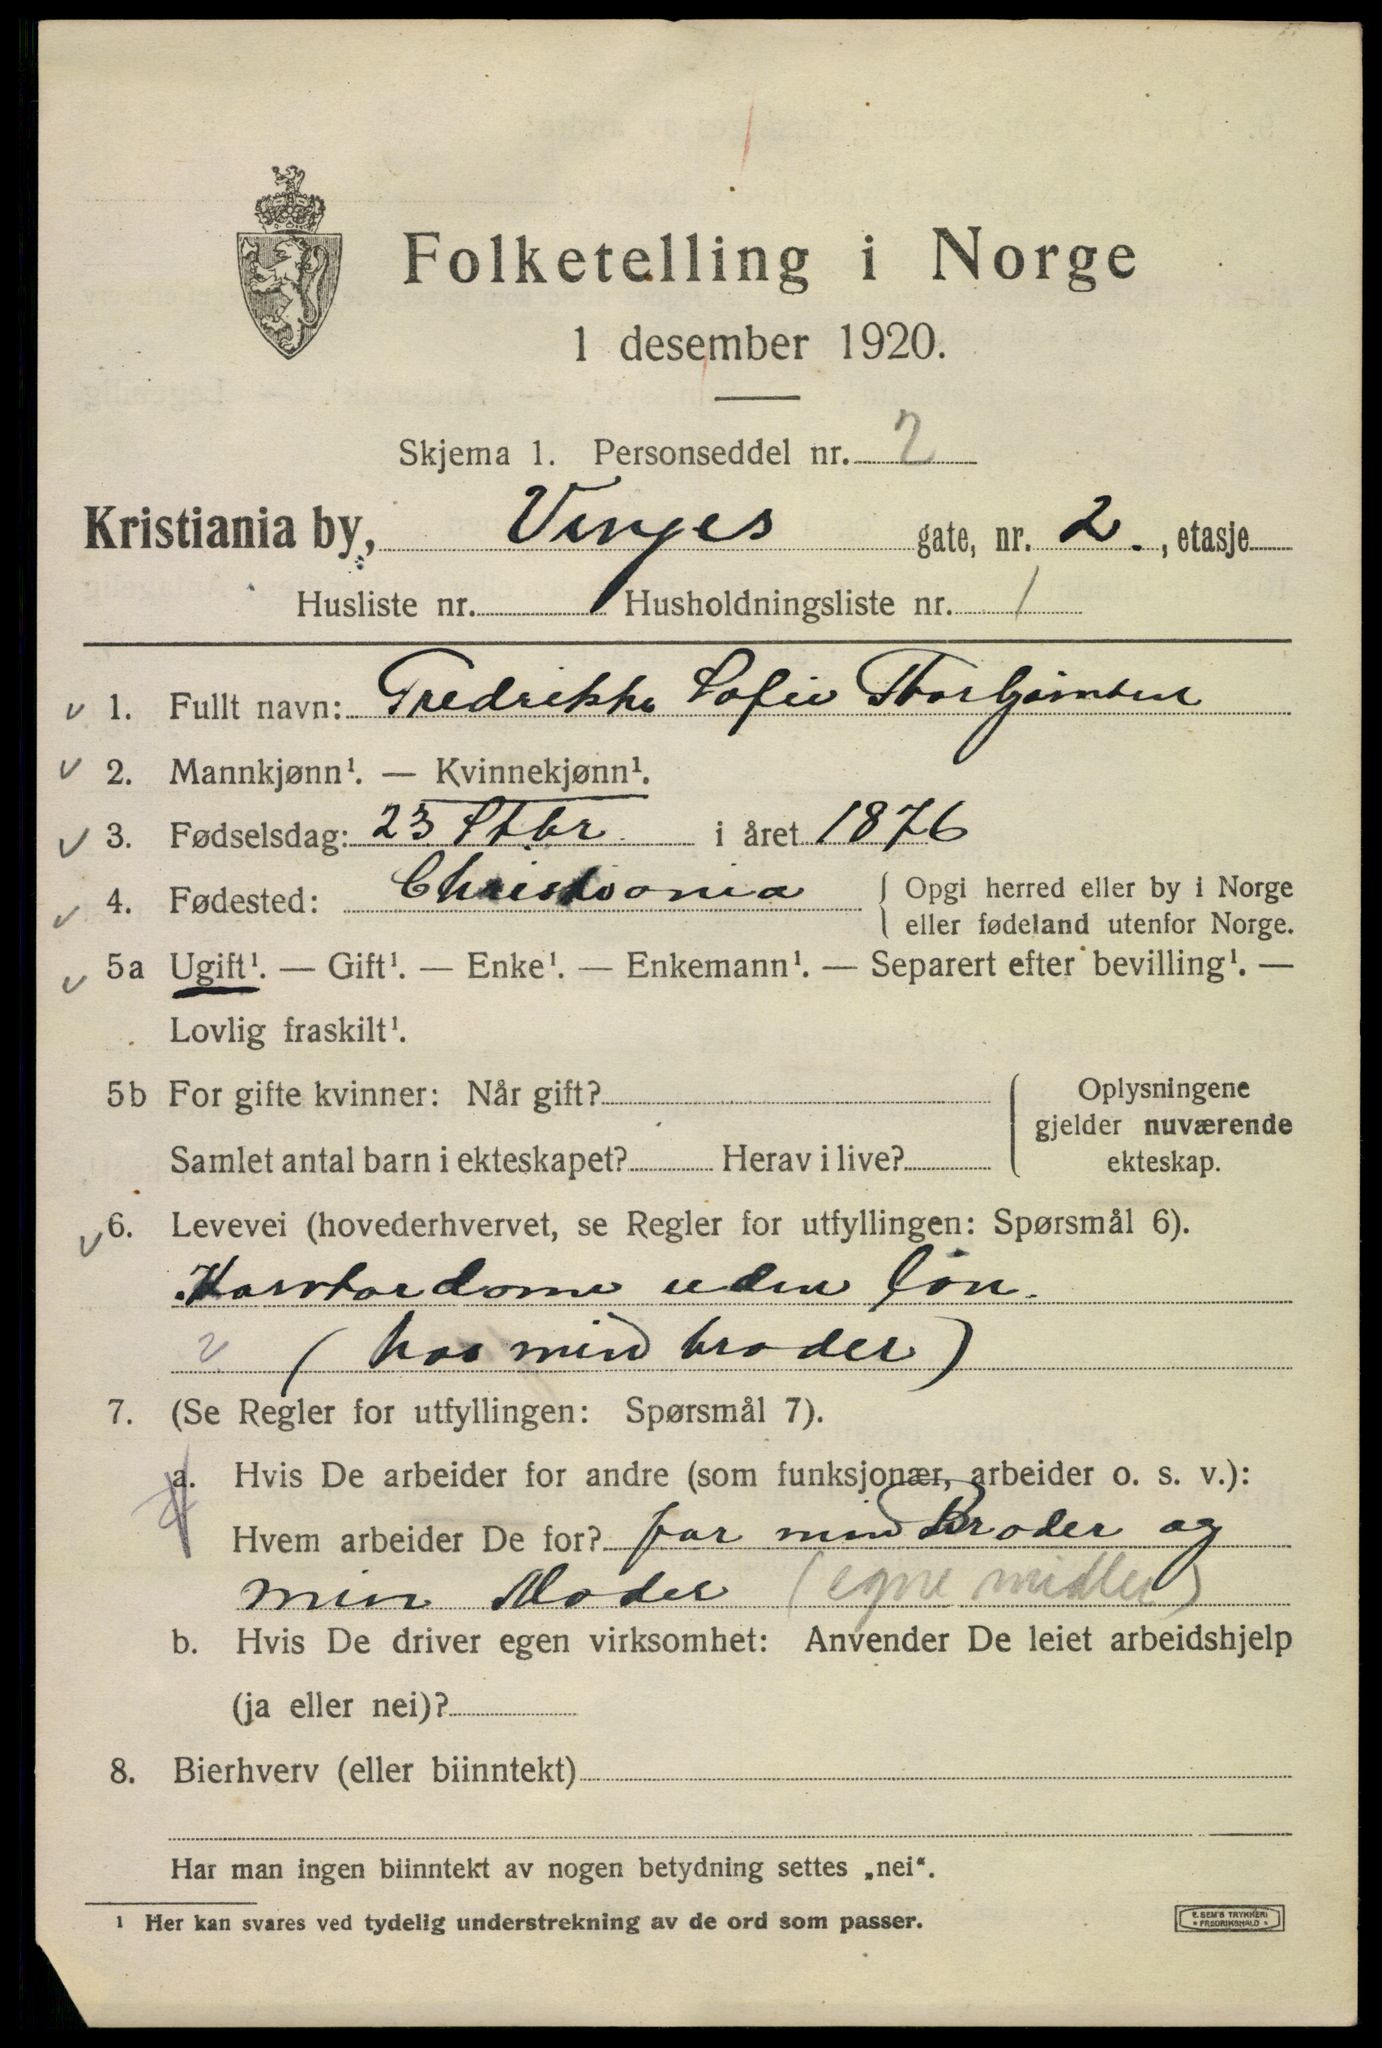 Folketelling i Norge
1 desember 1920.
Skjema 1. Personseddel nr. 2
Kristiania by, Vinges gate, nr. 2. , etasje
Husliste nr. Husholdningsliste nr. 1
1. Fullt navn: Fredrikke Sofie
2. Mannkjønn¹. — Kvinnekjønn¹.
3. Fødselsdag: 23 Stbr i året 1876
4. Fødested: Christiania { Opgi herred eller by i Norge
eller fødeland utenfor Norge.
5a Ugift¹. — Gift¹. — Enke¹. — Enkemann¹. — Separert efter bevilling¹. —
Lovlig fraskilt¹.
5b For gifte kvinner: Når gift? { Oplysningene
gjelder nuværende
Samlet antal barn i ekteskapet? Herav i live? ekteskap.
6. Levevei (hovederhvervet, se Regler for utfyllingen: Spørsmål 6).
uden løn.
(hos min broder)
7. (Se Regler for utfyllingen: Spørsmål 7).
a. Hvis De arbeider for andre (som funksjonær, arbeider o. s. v.):
Hvem arbeider De for? for min Broder og
min Moder (egne midler)
b. Hvis De driver egen virksomhet: Anvender De leiet arbeidshjelp
(ja eller nei)?
8. Bierhverv (eller biinntekt)
Har man ingen biinntekt av nogen betydning settes „nei“.
¹ Her kan svares ved tydelig understrekning av de ord som passer.
E. SEM'S TRYKKERI
* FREDRIKSHALD *